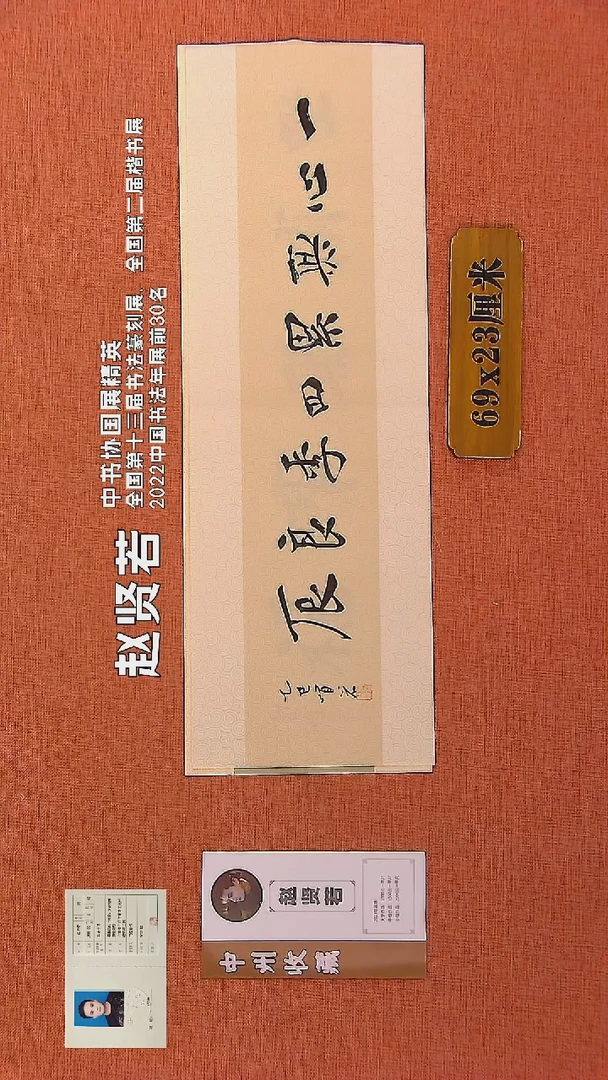 赵贤若
中书协国展精英
全国第十三届书法篆刻展、全国第二届楷书展
2022中国书法年展前30名
一心無累四季良辰
乙巳賢若
69x23厘米
中州收藏
赵贤若